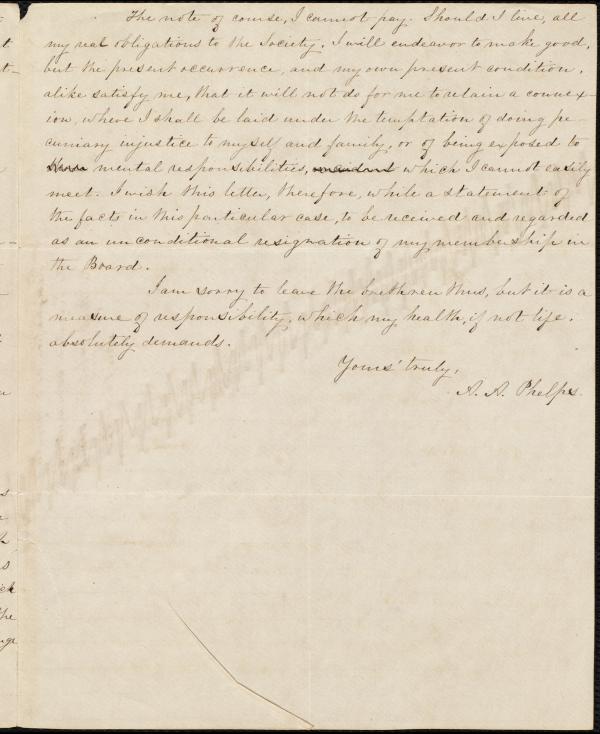 The note of course, I cannot pay. Should I live, all
my real obligations to the Society, I will endeavor to make good,
but the present occurrence, and my own present condition,
alike satisfy me, that it will not do for me to retain a connex-
ion, where I shall be laid under the temptation of doing pe-
cuniary injustice to myself and family, or of being exposed to
mental responsibilities, which I cannot easily
meet. I wish this letter, therefore, while a statement of
the facts in this particular case, to be received and regarded
as an unconditional resignation of my membership in
the Board.
I am sorry to leave the brethren thus, but it is a
measure of responsibility, which my health, if not life,
absolutely demands.
Yours' truly,
A. A. Phelps.